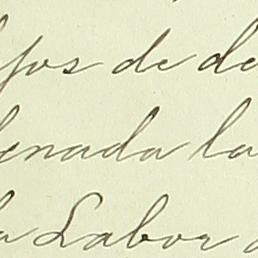 jos de de
enada la
la Labor